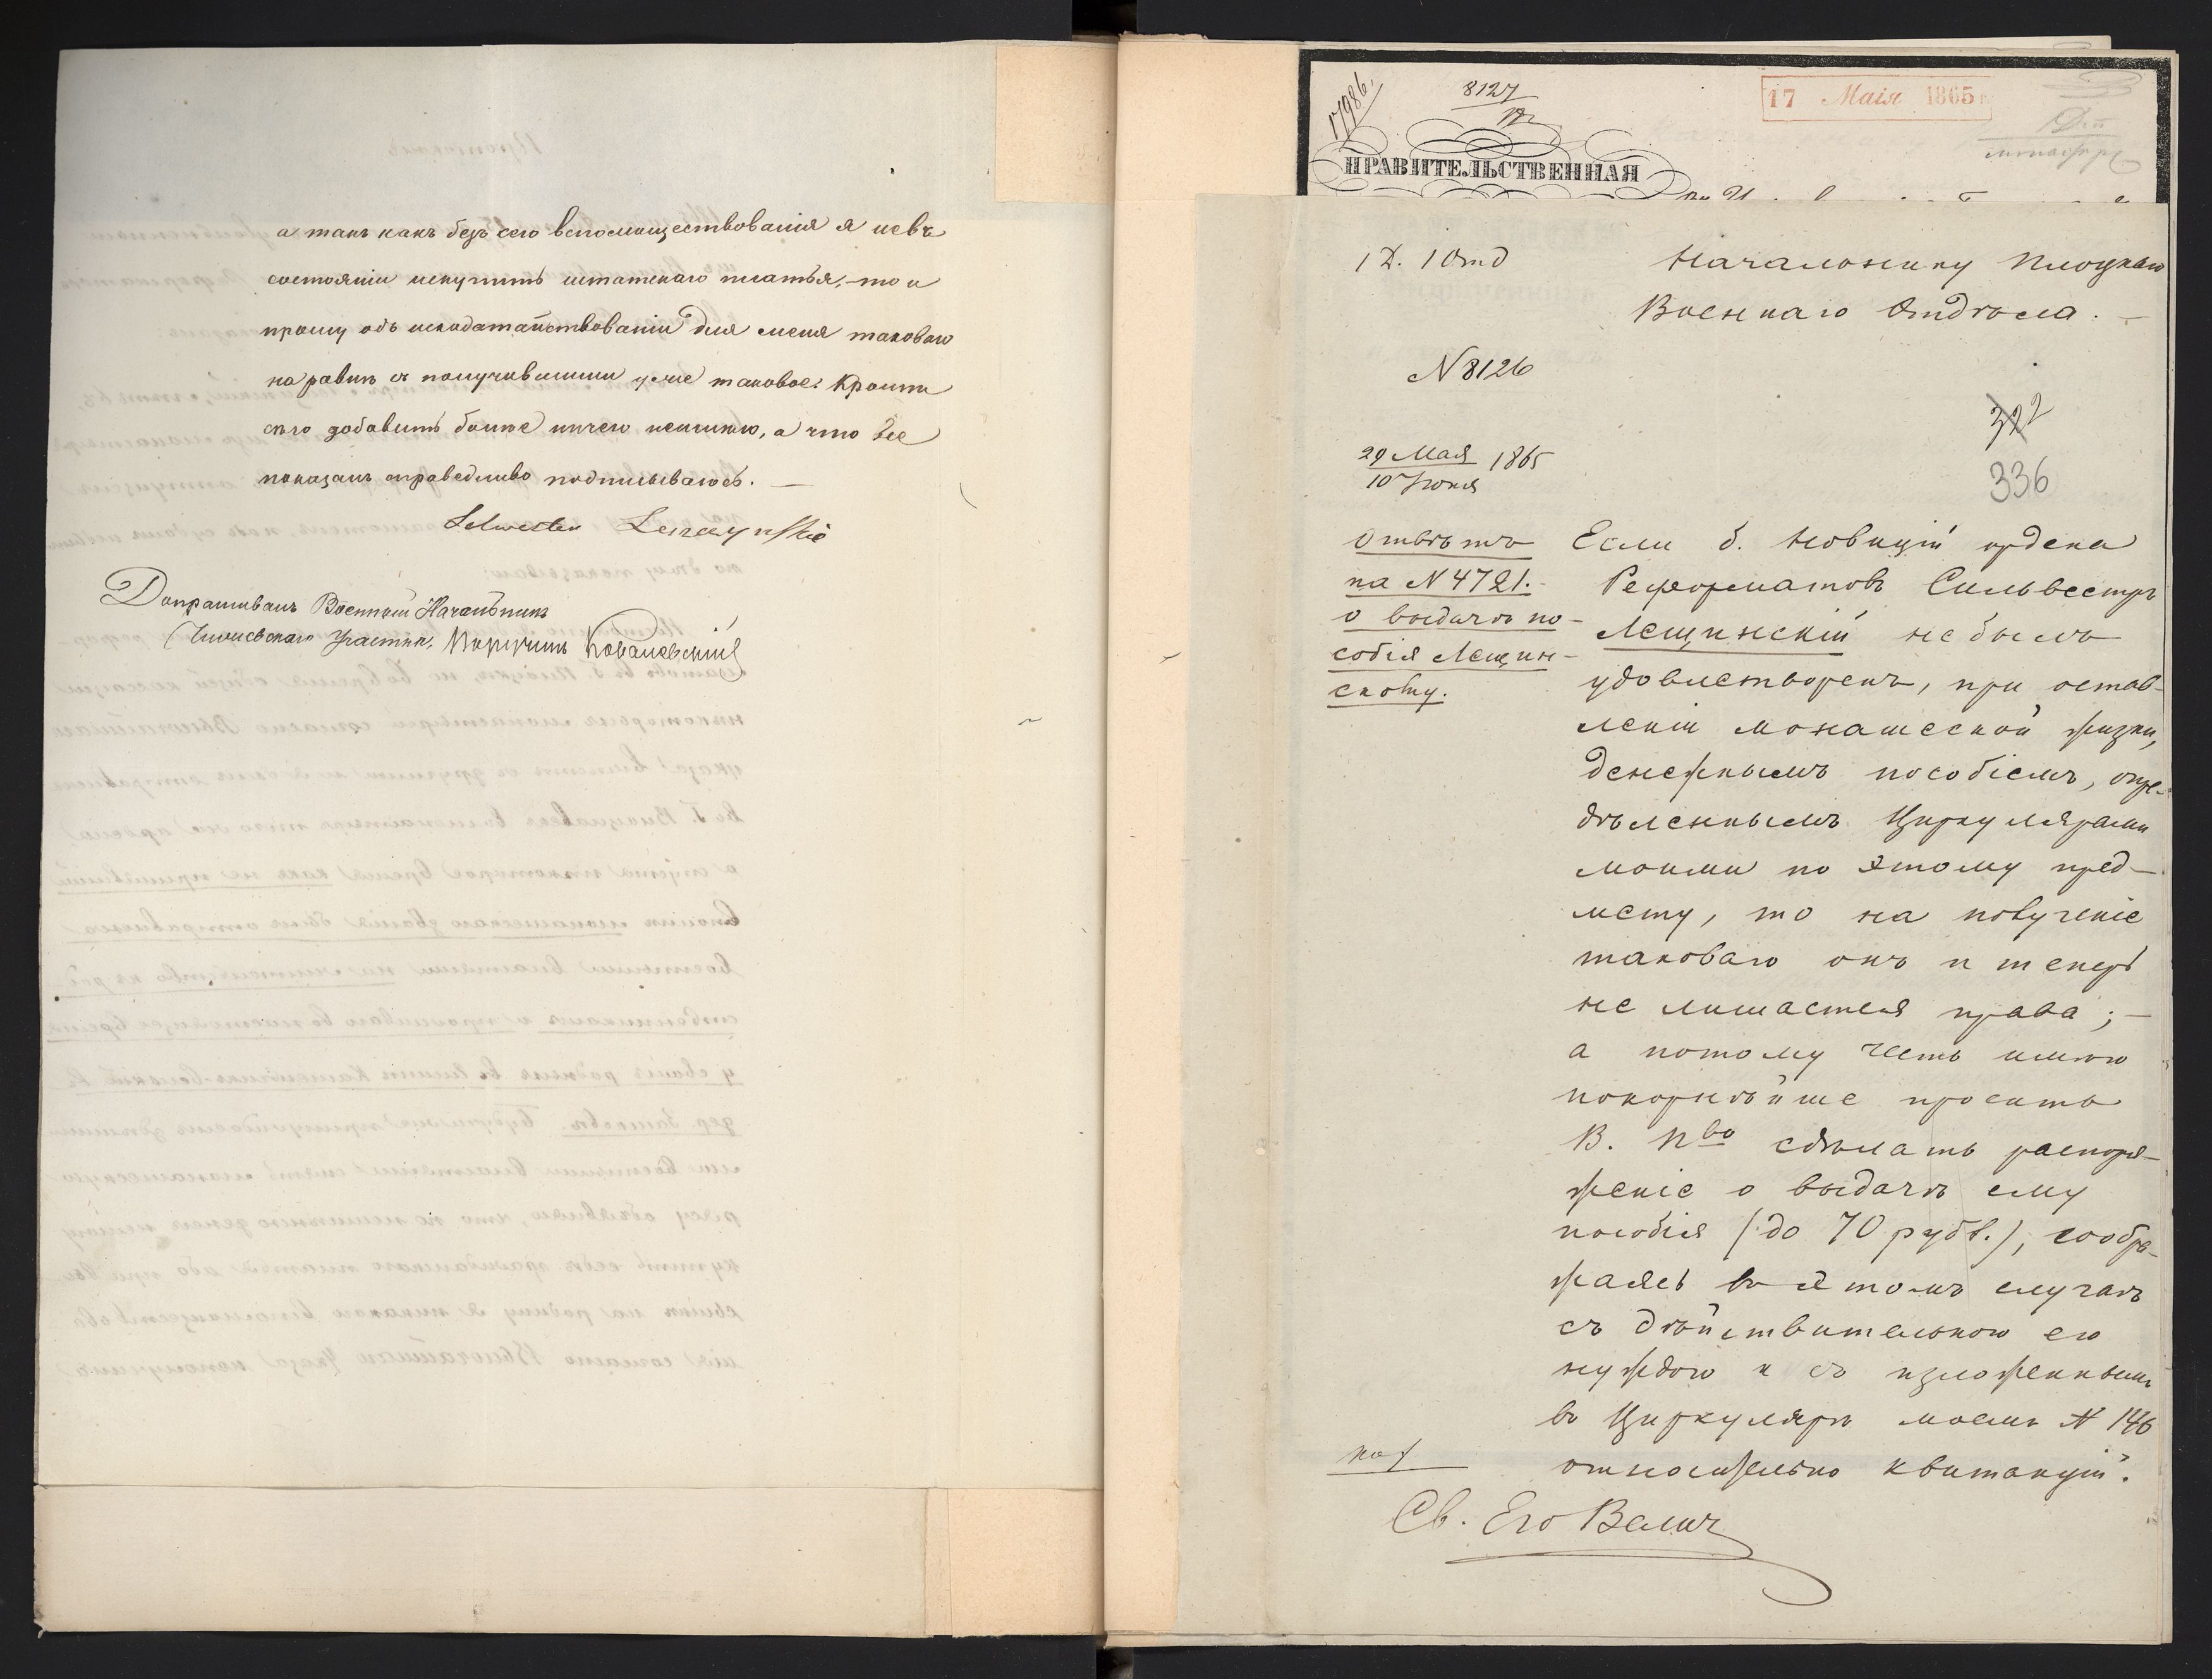 а такъ какъ безъ сего вспомоществованія я невъ
состояніи искупить штатскаго платья, – то и
прошу объ исходатайствованіи для меня таковаго
на равнѣ съ получившими уже таковое. Кромѣ
сего добавить болѣе ничего неимѣю, а что все
показалъ справедливо подписываюсь. —
Selwester Leszczynski
Допрашивалъ Военный Начальникъ
участка, Ковалевскій
17986.
8127
17 Маія 1865
ПРАВИТЕЛЬСТВЕННАЯ
1 Д. 1 Отд
Начальнику Плоцкаго
Военнаго Отдѣла. —
N 8126
322
336
29 Мая
10 Іюня 1865
Отвѣтъ
на N 4721.
о выдачѣ по-
собія Лещин-
скому.
Если б. новицій ордена
Реформатовъ Сильвестръ
Лещинскій не былъ
удовлетворенъ, при остав-
леніи монашеской жизни,
денежнымъ пособіемъ, опре-
дѣленнымъ Циркулярами
моими по этому пред-
мету, то на полученіе
таковаго онъ и теперь
не лишается права; —
а потому честь имѣю
покорнѣйше просить
В. Пво сдѣлать распоря-
женіе о выдачѣ ему
пособія (до 70 рубл.), сообра-
жаясь въ этомъ случаѣ
съ дѣйствительною его
нуждою и съ изложеннымъ
въ Циркулярѣ моемъ N 146
относительно квитанцій.
Св. Его Велич